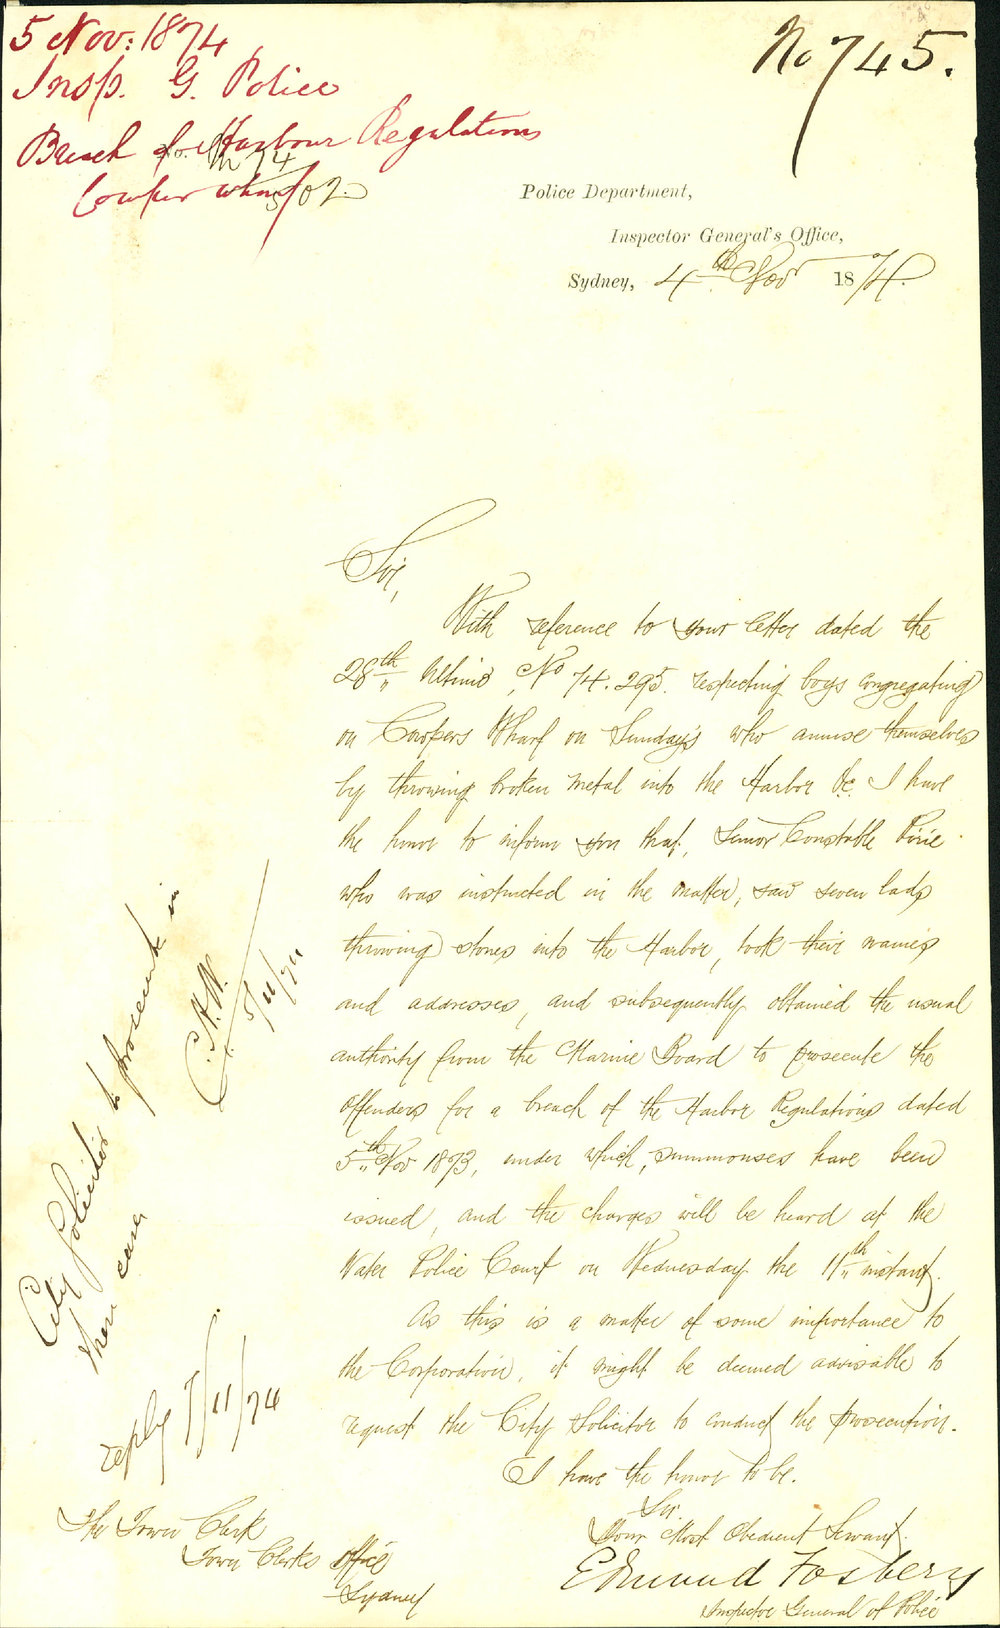 5 Nov: 1874
Insp. G. Police
Breach of Harbour Regulations
Cowper wharf
No 745.
Police Department,
Inspector General's Office,
Sydney, 4th Nov 1874.
Sir,
With reference to your letter dated the
28th Ultimo, No 74.295. respecting boys congregating
on Cowpers Wharf on Sunday's who amuse themselves
by throwing broken metal into the Harbor &c. I have
the honor to inform you that, Senior Constable Pirie
who was instructed in the matter, saw seven lads
throwing stones into the Harbor, took their names
and addresses, and subsequently obtained the usual
authority from the Marine Board to prosecute the
offenders for a breach of the Harbor Regulations dated
5th Nov 1873, under which, summonses have been
issued, and the charges will be heard at the
Water Police Court on Wednesday the 11th instant.
As this is a matter of some importance to
the Corporation, it might be deemed advisable to
request the City Solicitor to conduct the prosecution.
I have the honor to be.
Sir.
Your Most Obedient Servant.
Edmund Fosbery
Inspector General of Police
The Town Clerk
Town Clerks Office
Sydney
City Solicitor to prosecute in
these cases
C.H.W.
5/11/74
reply 7/11/74